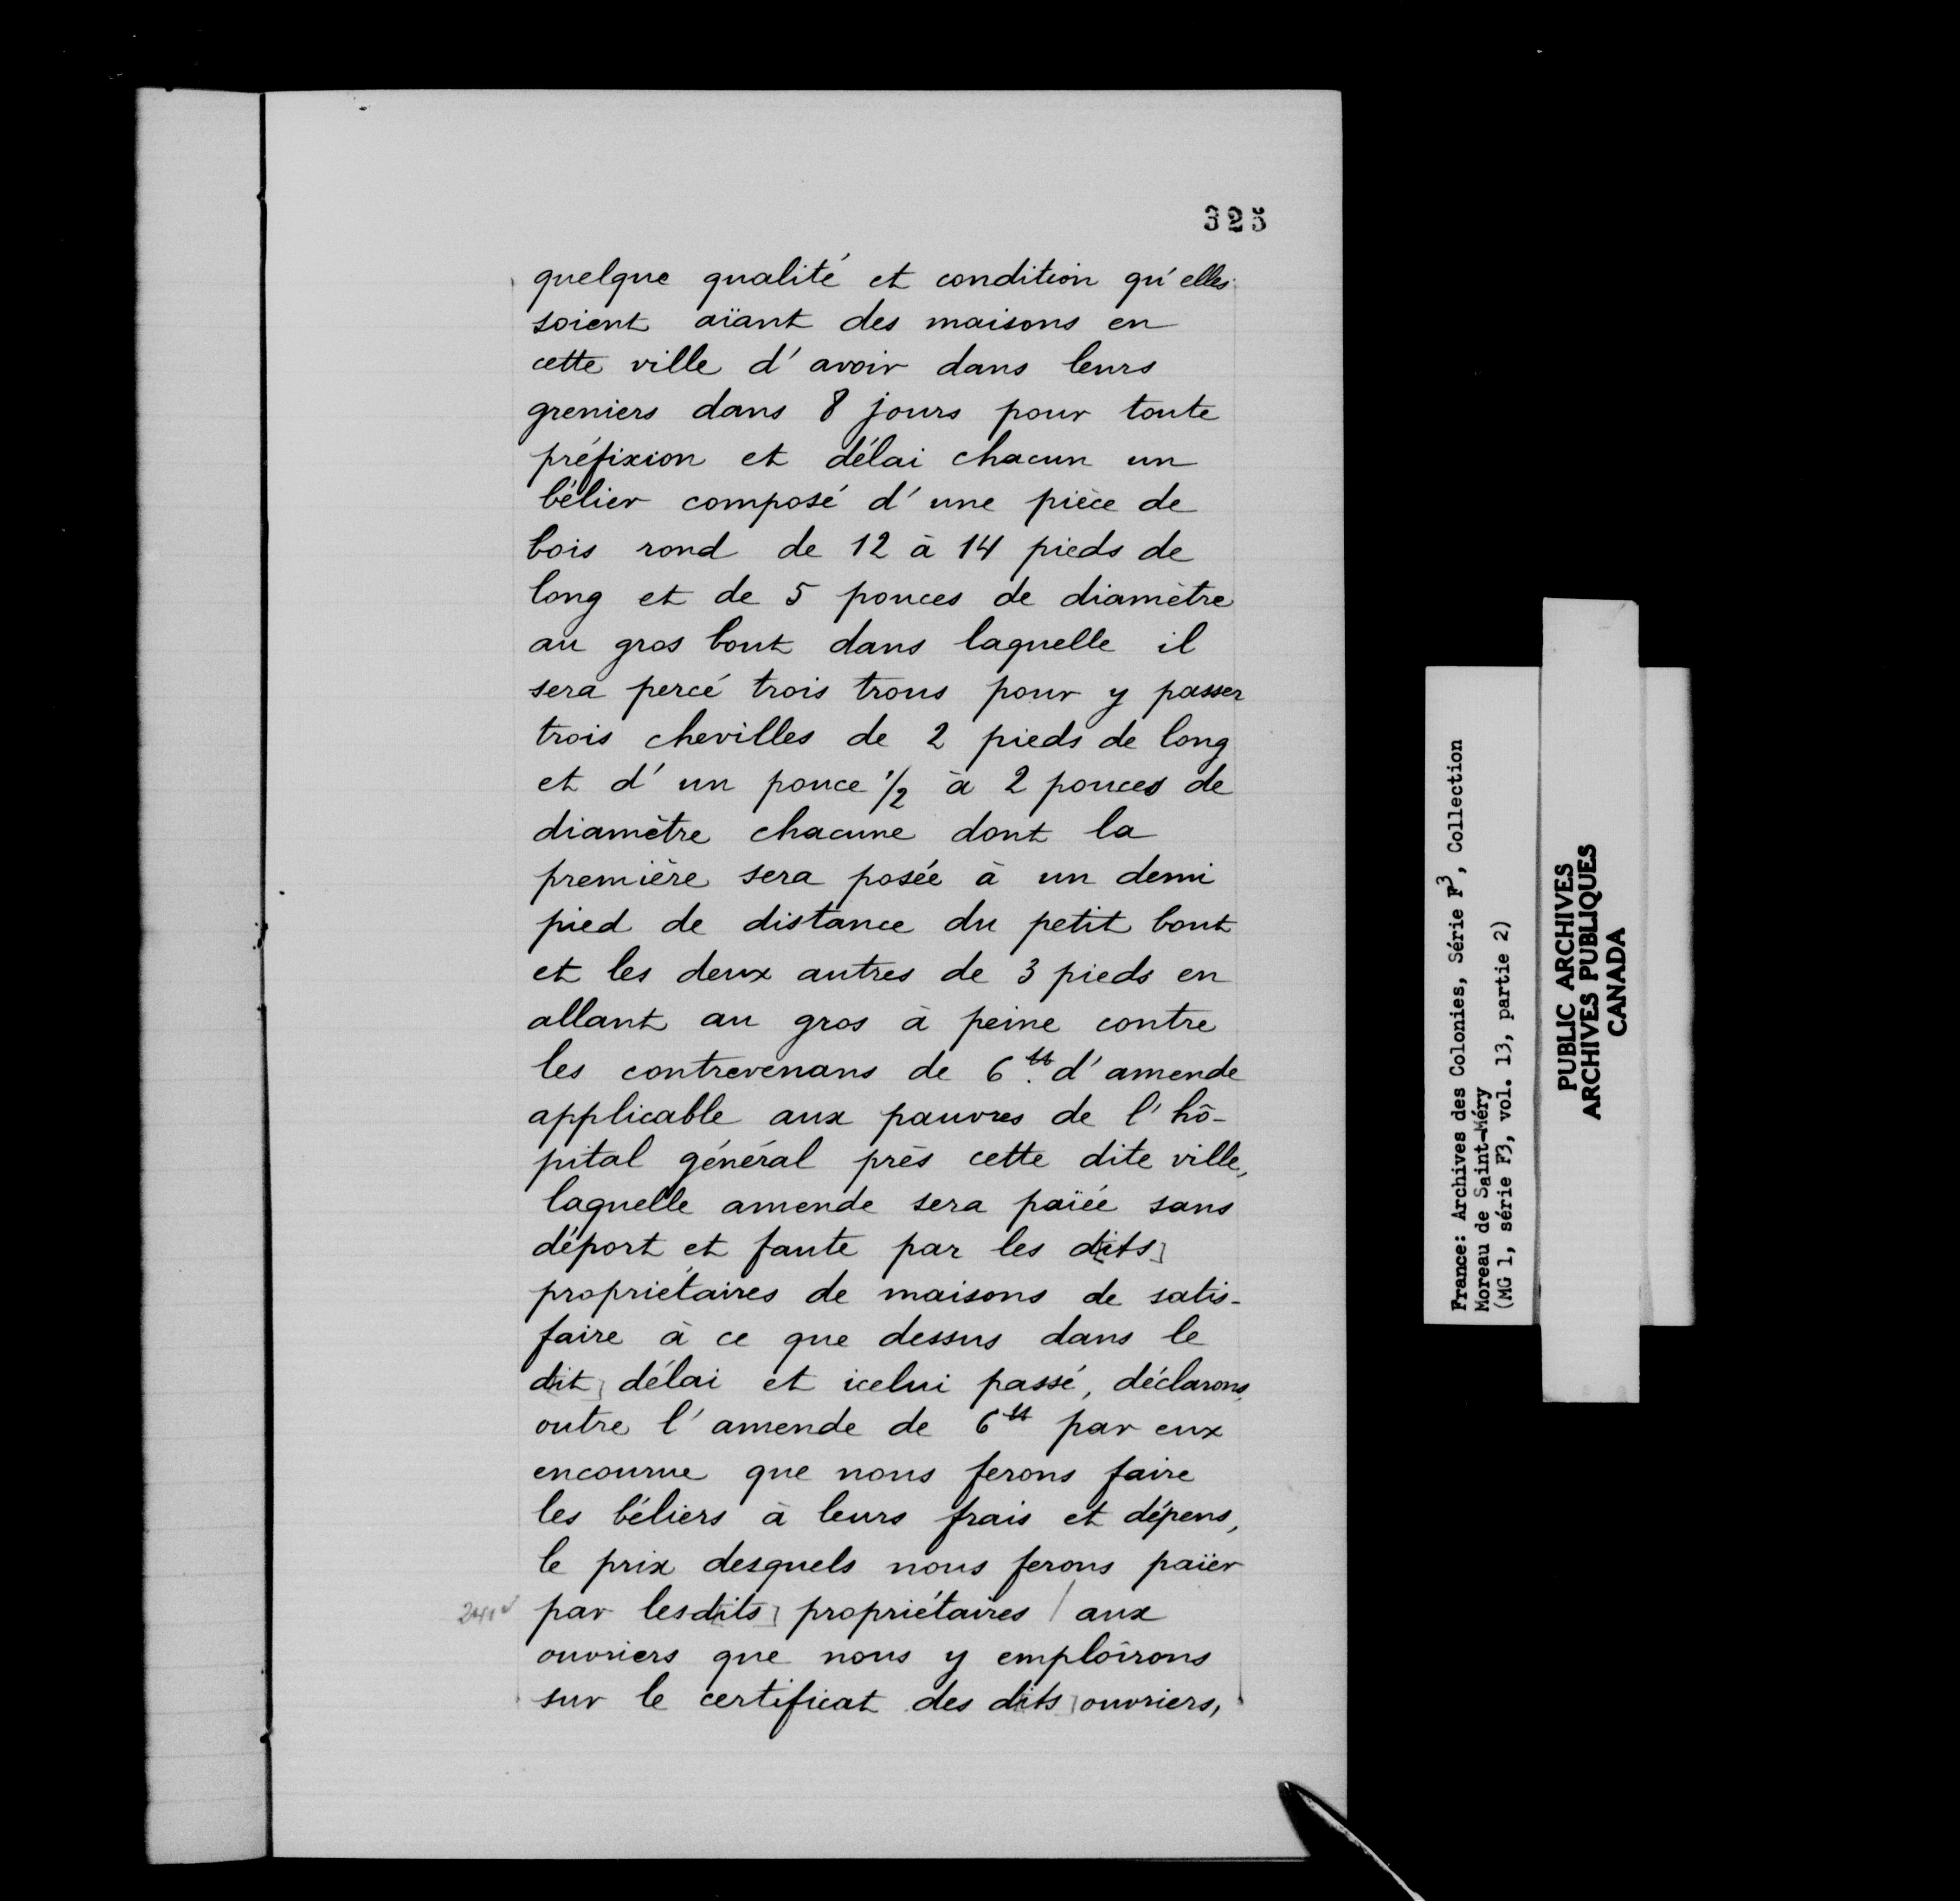 325
quelque qualité et condition qu'elles
soient aïant des maisons en
cette ville d'avoir dans leurs
greniers dans 8 jours pour toute
préfixion et délai chacun un
bélier composé d'une pièce de
bois rond de 12 à 14 pieds de
long et de 5 pouces de diamètre
au gros bout dans laquelle il
sera percé trois trous pour y passer
trois chevilles de 2 pieds de long
et d'un pouce 1/2 à 2 pouces de
diamètre chacune dont la
première sera posée à un demi
pied de distance du petit bout
et les deux autres de 3 pieds en
allant au gros à peine contre
les contrevenans de 6.tt d'amende
applicable aux pauvres de l'hô-
pital général près cette dite ville,
laquelle amende sera païée sans
déport et faute par les d[its]
propriétaires de maisons de satis-
faire à ce que dessus dans le
d[it] délai et icelui passé, déclarons,
outre l'amende de 6tt par eux
encourue que nous ferons faire
les béliers à leurs frais et dépens,
le prix desquels nous ferons païer
par lesd[its] propriétaires / aux
ouvriers que nous y emploîrons
sur le certificat des d[its] ouvriers,
France: Archives des Colonies, Série F3, Collection
Moreau de Saint-Méry
(MG 1, série F3, vol. 13, partie 2)
PUBLIC ARCHIVES
ARCHIVES PUBLIQUES
CANADA